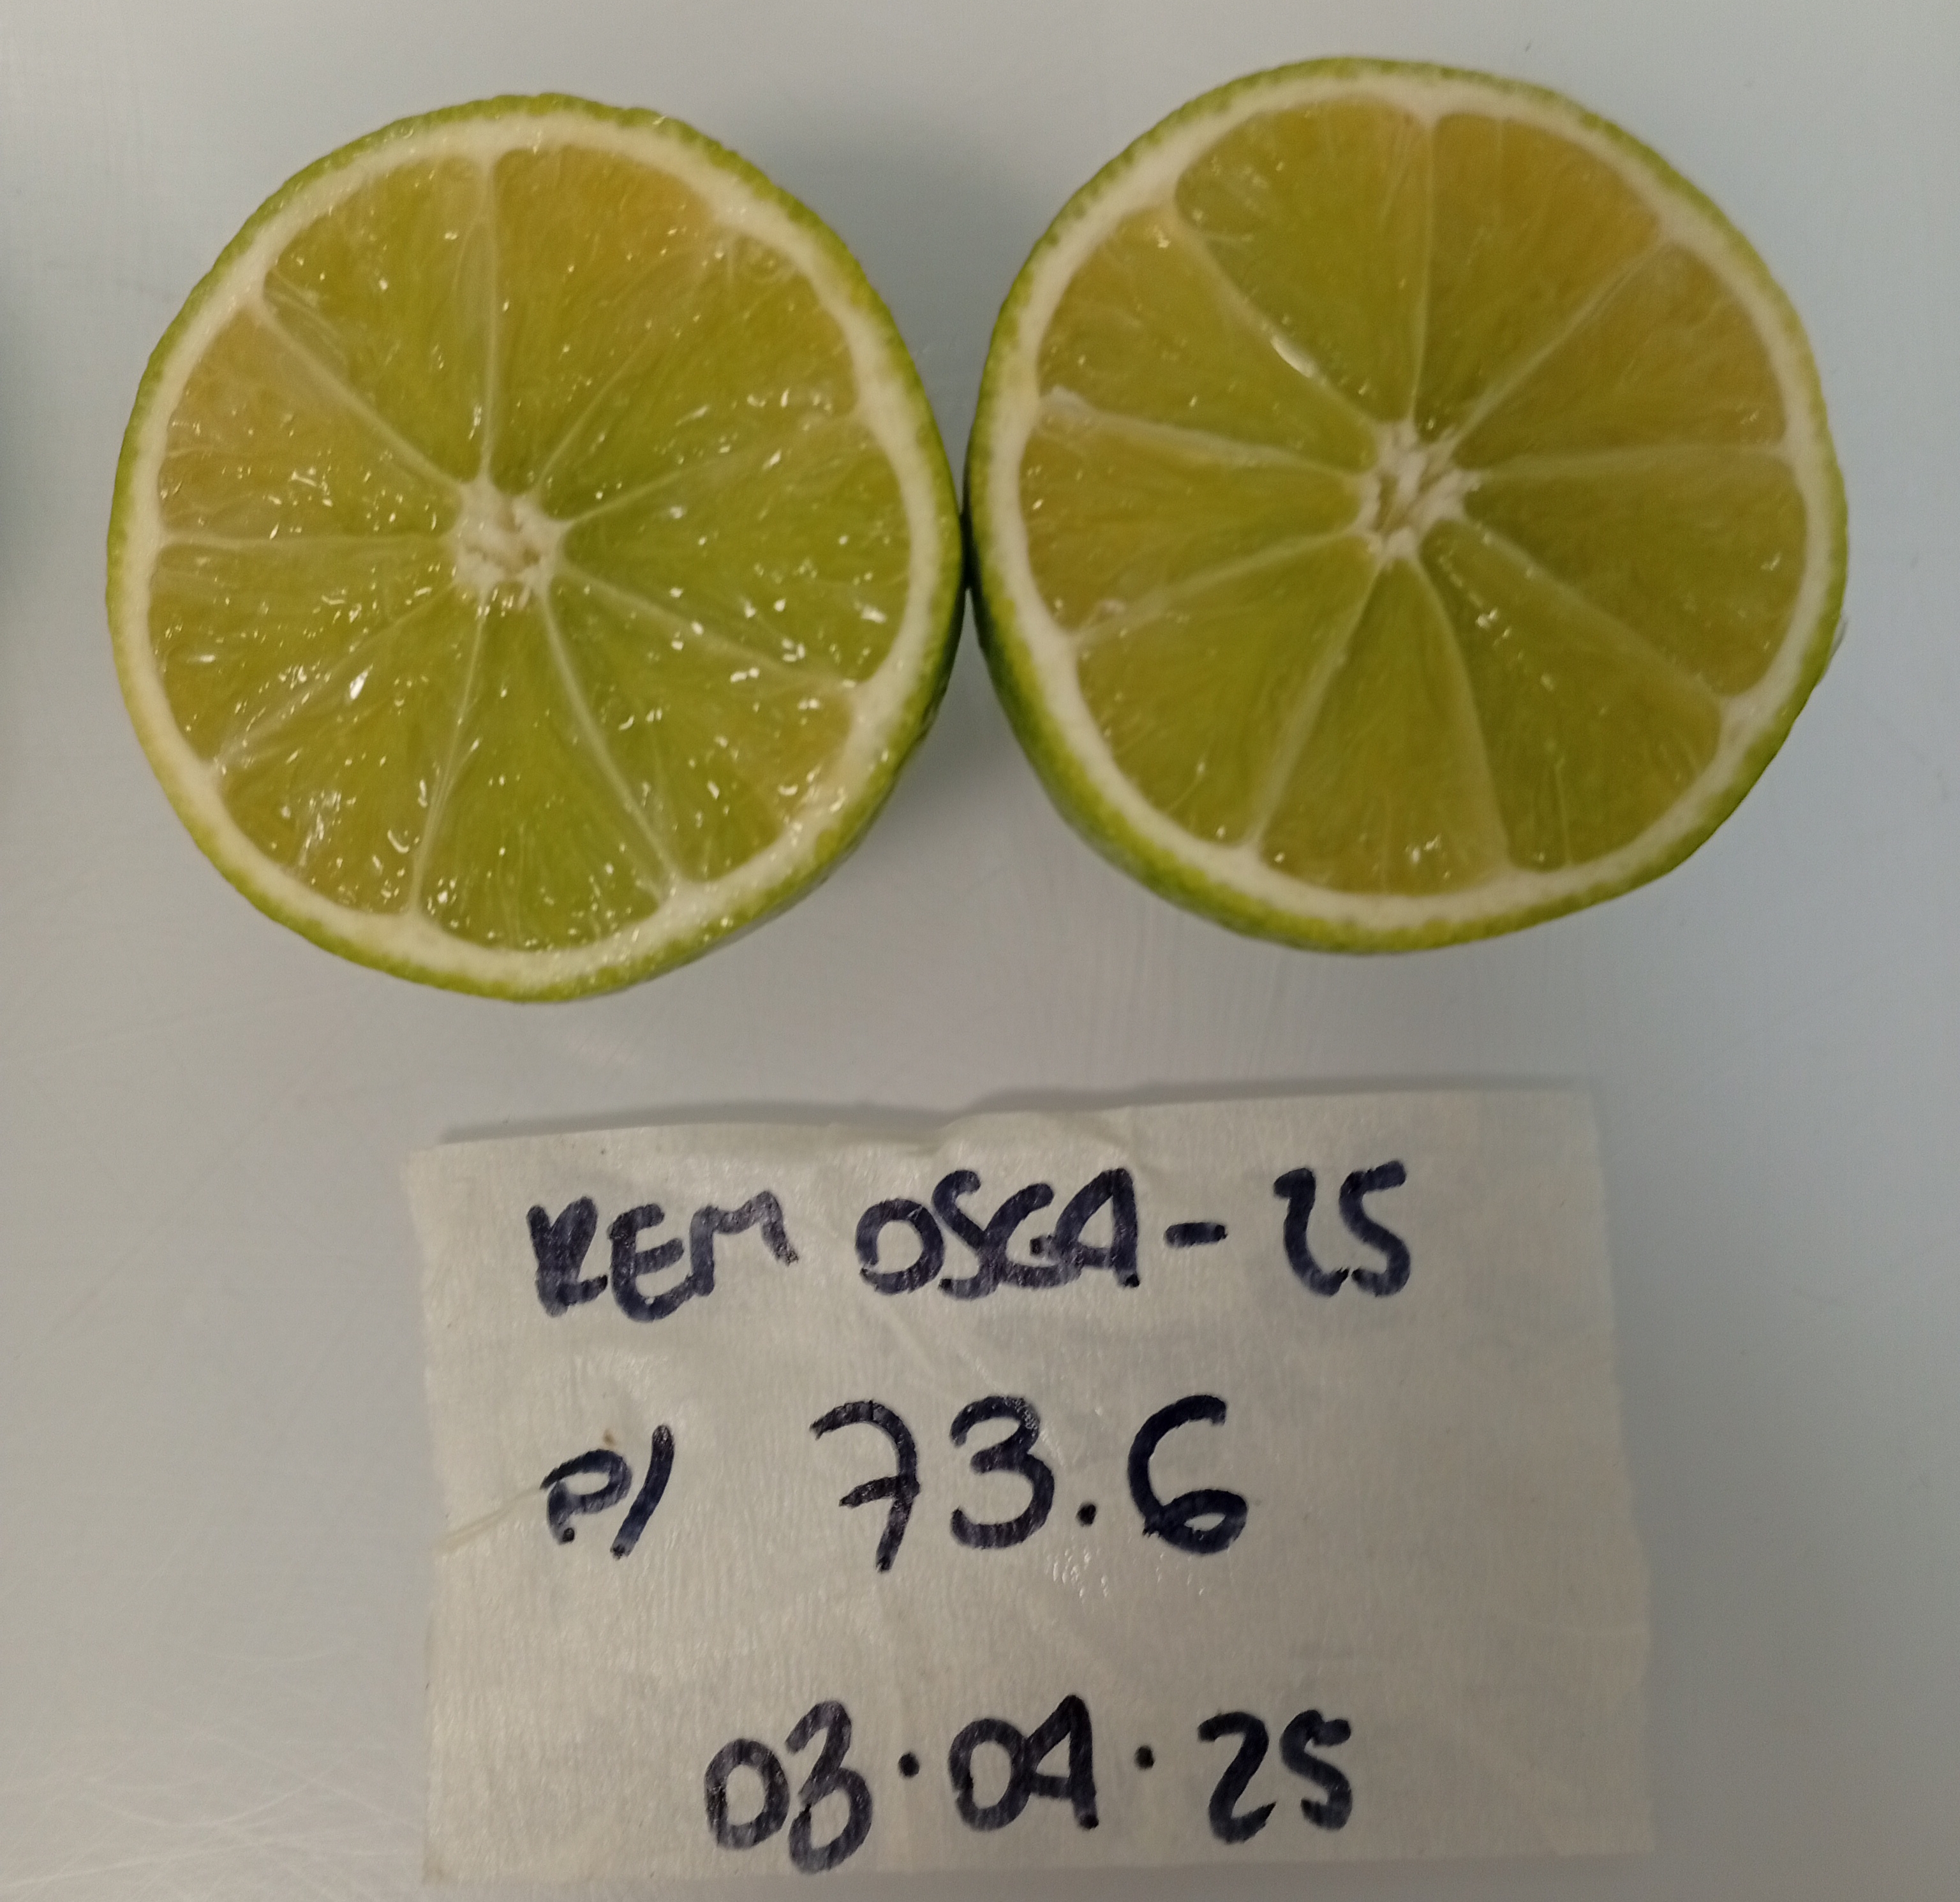 REM OSGA-25
P/ 73.6
03.04.25